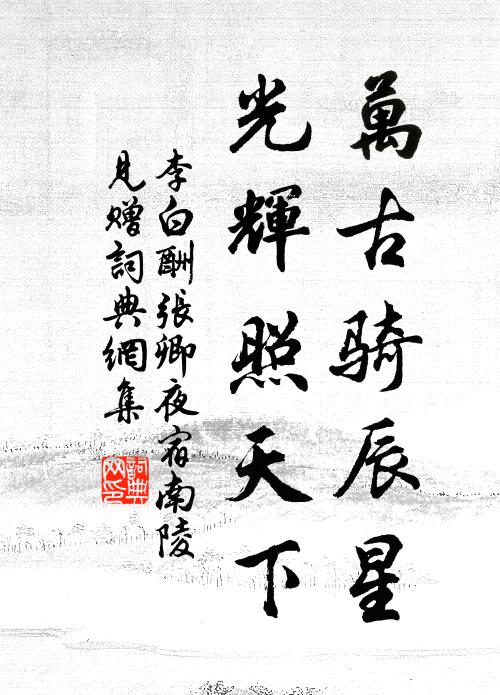 萬古騎辰星
光輝照天下
李白酬張卿夜宿南陵
見贈詞典網集
詞典網印